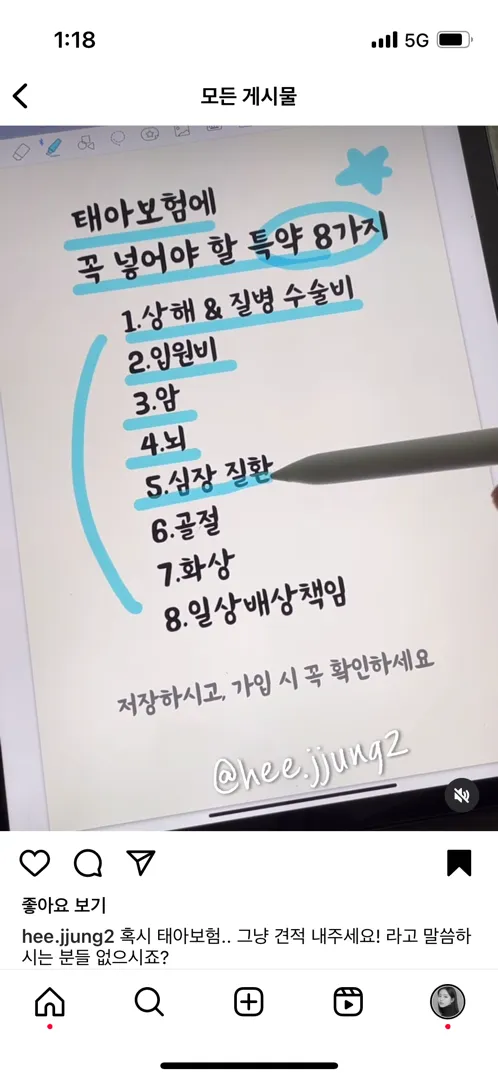 1:18
5G
모든 게시물
태아보험에
꼭 넣어야 할 특약 8가지
1.상해 & 질병 수술비
2.입원비
3.암
4.뇌
5.심장 질환
6.골절
7.화상
8.일상배상책임
저장하시고, 가입 시 꼭 확인하세요
@hee.jjung2
좋아요 보기
hee.jjung2 혹시 태아보험.. 그냥 견적 내주세요! 라고 말씀하
시는 분들 없으시죠?